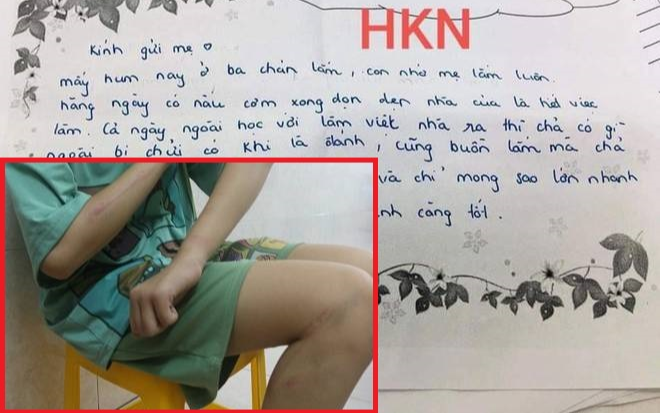 HKN
Kính gửi mẹ
mấy hum nay ở ba chán lắm, con nhớ mẹ lắm luôn.
hằng ngày có nấu cơm xong dọn dẹp nhà cửa là hết việc
làm. Cả ngày ngoài học với làm việt nhà ra thì chả có gì
ngoài bị chửi có khi là đánh, cũng buồn lắm mà chả
và chỉ mong sao lớn nhanh
càng tốt.